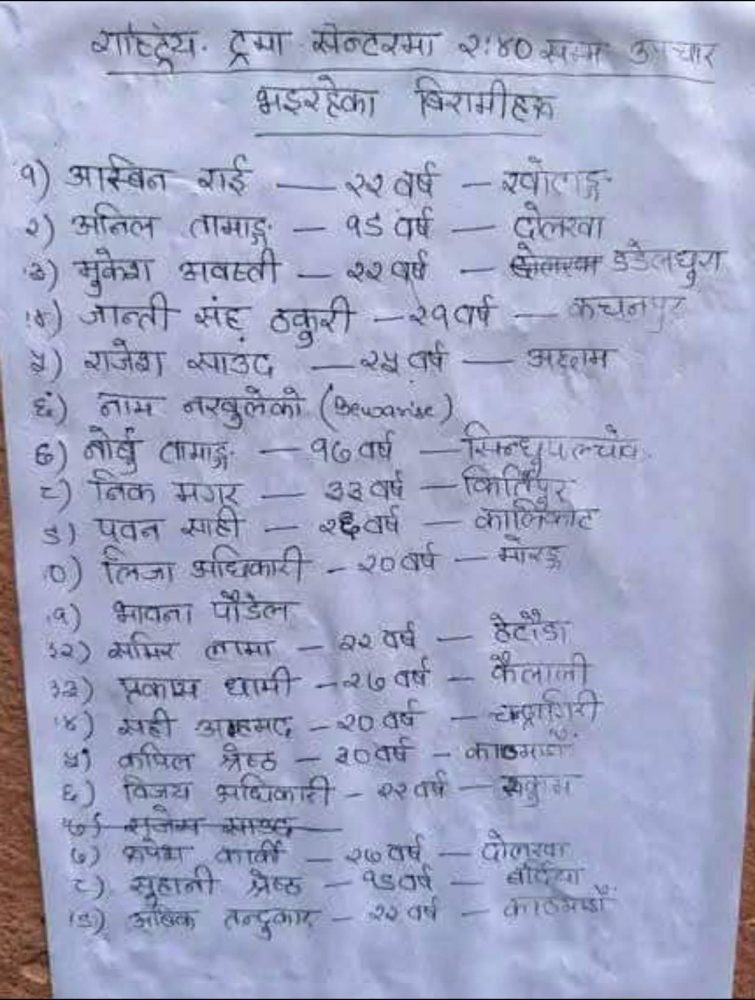 राष्ट्रिय ट्रमा सेन्टरमा २:४० सम्म उपचार
भइरहेका बिरामीहरू
१) आस्बिन राई — २२ वर्ष — खोटाङ्ग
२) अनिल तामाङ्ग — १९ वर्ष — दोलखा
३) मुकेश अवस्ती — २२ वर्ष — डडेलधुरा
४) जान्ती संह ठकुरी — २१ वर्ष — कचनपुर
५) राजेश साउद — २५ वर्ष — अछाम
६) नाम नखुलेको (Bewarise)
७) नोर्बु तामाङ्ग — १७ वर्ष — सिन्धुपाल्चोक
८) निक मगर — ३३ वर्ष — किर्तिपुर
९) पवन साही — २६ वर्ष — कालिकोट
०) लिजा अधिकारी — २० वर्ष — मोरङ्ग
१) भावना पौडेल
१२) समिर लामा — २२ वर्ष — हेटौडा
१३) प्रकाश धामी — २७ वर्ष — कैलाली
१४) सही अहमद — २० वर्ष — चन्द्रागिरी
५) कपिल श्रेष्ठ — ३० वर्ष — काठमाडौं
६) विजय अधिकारी — २२ वर्ष — रुकुम
७) साउद
७) रुपेश कार्की — २७ वर्ष — दोलखा
८) सुहानी श्रेष्ठ — १९ वर्ष — बर्दिया
१९) अबिक तन्दुकार — २२ वर्ष — काठमाडौं